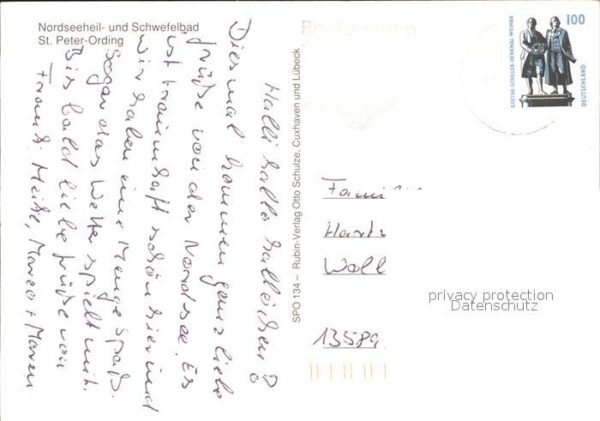 Nordseeheil- und Schwefelbad
St. Peter-Ording
Halli hallo hallöchen!
Diesmal kommen ganz liebe
Grüße von der Nordsee. Es
ist traumhaft schön hier und
wir haben eine Menge Spaß.
Sogar das Wetter spielt mit.
Bis bald liebe Grüße von
Frank, Heike, Marco + Maren
SPO 134 – Rubin-Verlag Otto Schulze, Cuxhaven und Lübeck
Briefzentrum
GOETHE-SCHILLER-DENKMAL WEIMAR
100
DEUTSCHLAND
Fami
Hartr
Woll
13589
privacy protection
Datenschutz